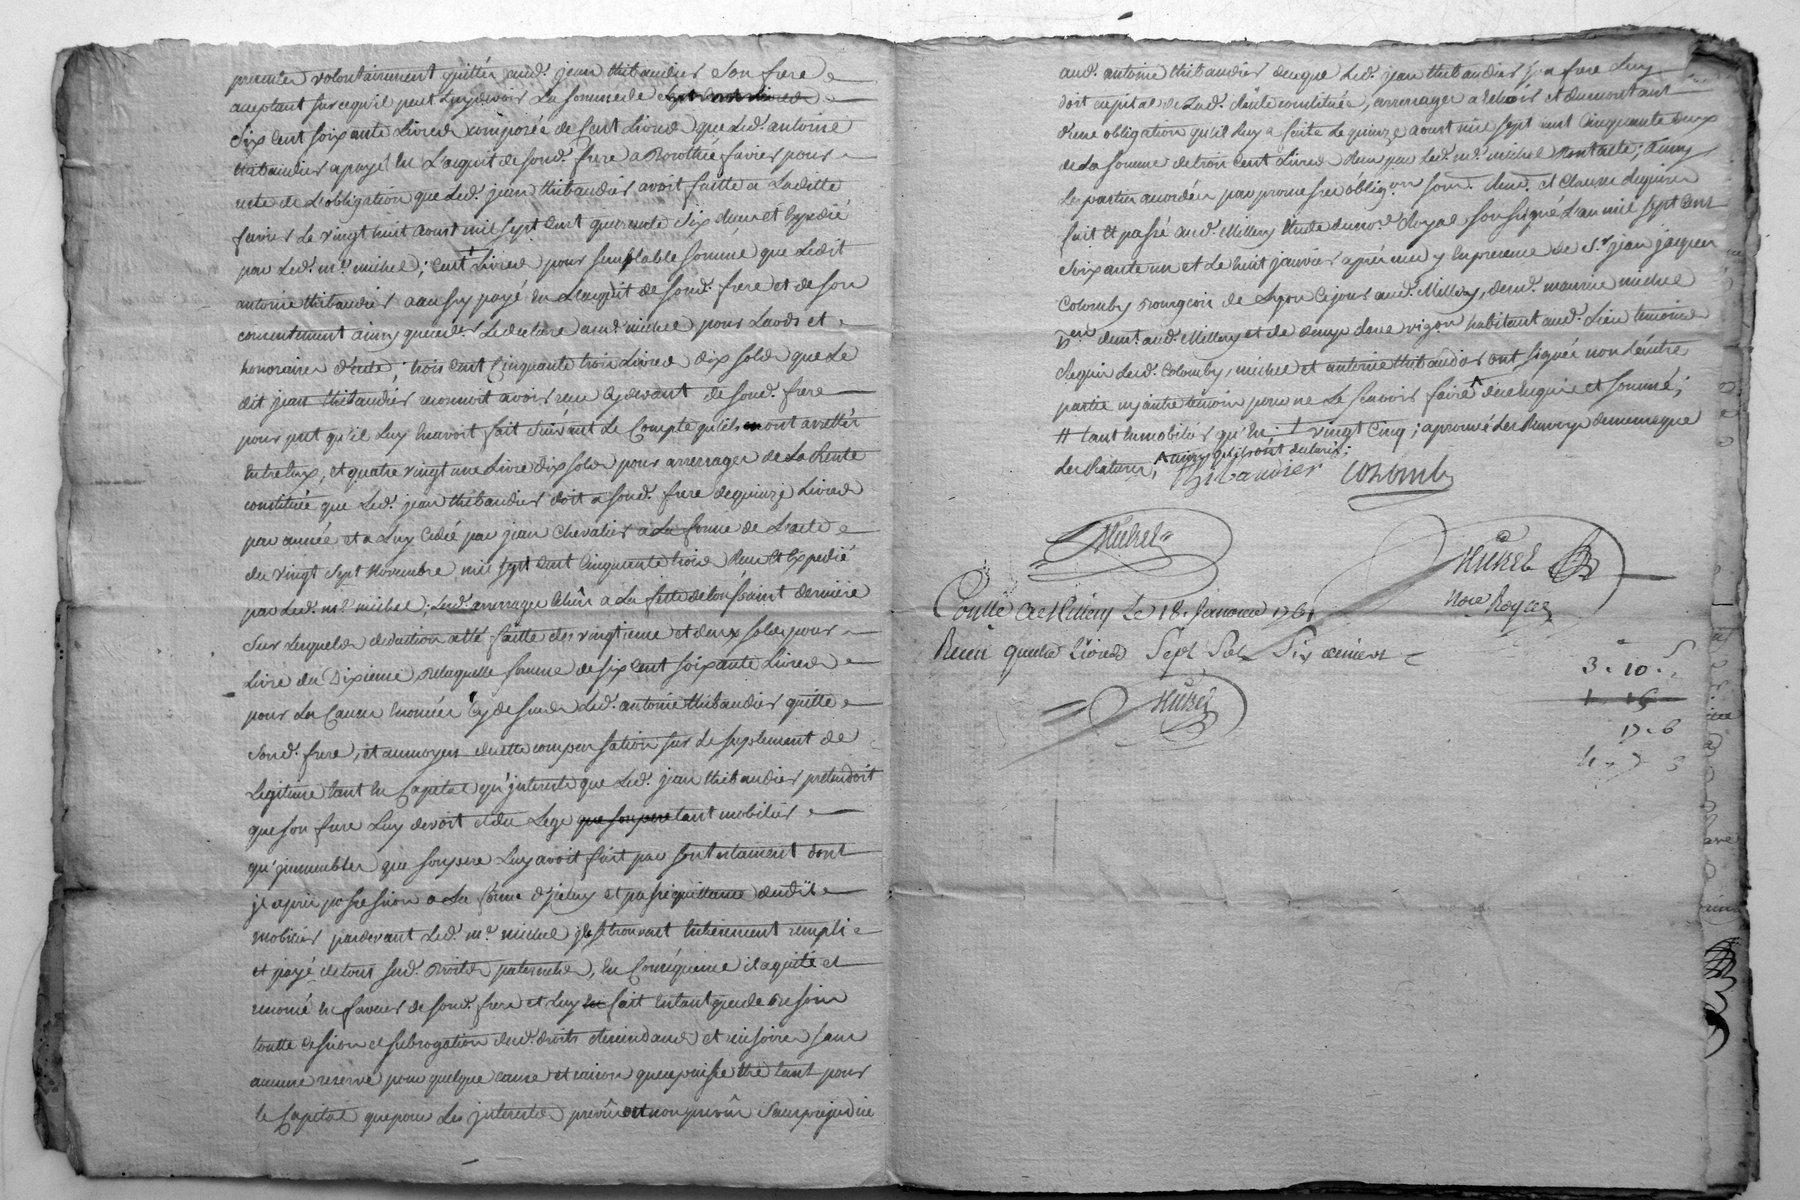 premier volontairement quitter aud. jean thibaudier son frere
aceptant sur ce qu'il peut luy devoir la somme de
six cent soixante livres composée de cent livres que led. antoine
thibaudier a payé en l'acquit de sond. frere a Dorothée favier pour
reste de l'obligation que led. jean thibaudier avoit faitte a laditte
favier le vingt huit aoust mil sept cent quarante six deue et expedié
par led. me. michel; cent livres pour semblable somme que ledit
antoine thibaudier a aussy payé en l'acquit de sond. frere et de son
consentement ainsy que led. le declare aud. michel pour laods et
honoraires d'acte; trois cent cinquante trois livres dix sols que le
dit jean thibaudier reconnoit avoir reçu cy devant de sond. frere
pour pret qu'il luy en avoit fait suivant le compte qu'ils en ont arretté
entre eux, et quatre vingt une livre dix sols pour arrerages de la rente
constituée que led. jean thibaudier doit a sond. frere de quinze livres
par année et a luy cedié par jean chevalier a la forme de l'acte
du vingt sept novembre mil sept cent cinquante trois deue et expedié
par led. me. michel; led. arrerages echûs a la feste de toussaint derniere
sur lesquels deduction a été faitte des vingtieme et deux sols pour
livre du dixieme de laquelle somme de six cent soixante livres
pour les causes enoncées cy dessus led. antoine thibaudier quitte
sond. frere, et au moyen de cette compensation sur le suplement de
legitime tant en capital qu'interets que led. jean thibaudier pretendoit
que son frere luy devoit et du legs que son pere tant mobilier
qu'immeubles que son pere luy avoit fait par son testament dont
il a pris possession a la forme d'iceluy et passé quittance dudit
mobilier pardevant led. me. michel il se trouvant entierement rempli
et payé de tous sesd. droits paternels, en consequence il a quitté et
renoncé en faveur de sond. frere et luy fait en tant que de besoin
toutte cession et subrogation desd. droits descindants et rescisoires sans
aucune reserve pour quelque cause et raison que ce puisse etre tant pour
le capital que pour les interets prevûs et non prevûs sans prejudice
aud. antoine thibaudier de ce que led. jean thibaudier son frere luy
doit capital de lad. rente constituée, arrerages a echeoir et du montant
d'une obligation qu'il luy a faite le quinze aoust mil sept cent cinquante deux
de la somme de trois cent livres deue par led. me. michel dont acte; ainsy
les parties accordées par promesses oblig.on soum. renon. et clauses requises
fait et passé aud. Millery etude du no.re Royal soussigné l'an mil sept cent
soixante un et le huit janvier après midy en presence de Sr. jean jacques
Colomby bourgeois de Lyon ce jour aud. Millery, de me. maurice michel
demt. aud. Millery et de claude vigon habitant aud. lieu temoins
requis led. colomby, michel et antoine thibaudier ont signé non l'autre
partie ny autre temoin pour ne le sçavoir faire de ce enquis et sommé;
# tant en mobilier qu'en + vingt cinq; aprouvé les renvoys de meme que
les ratures; ^ ainsy qu'ils ont declaré;
Thibaudier Colomby
Michel
Michel
Nore Royal
Contlé a Millery le 18. Janvier 1761
Reçu quatre livres sept sols six deniers
Michel
3. 10.
17. 6
4. 7. 6